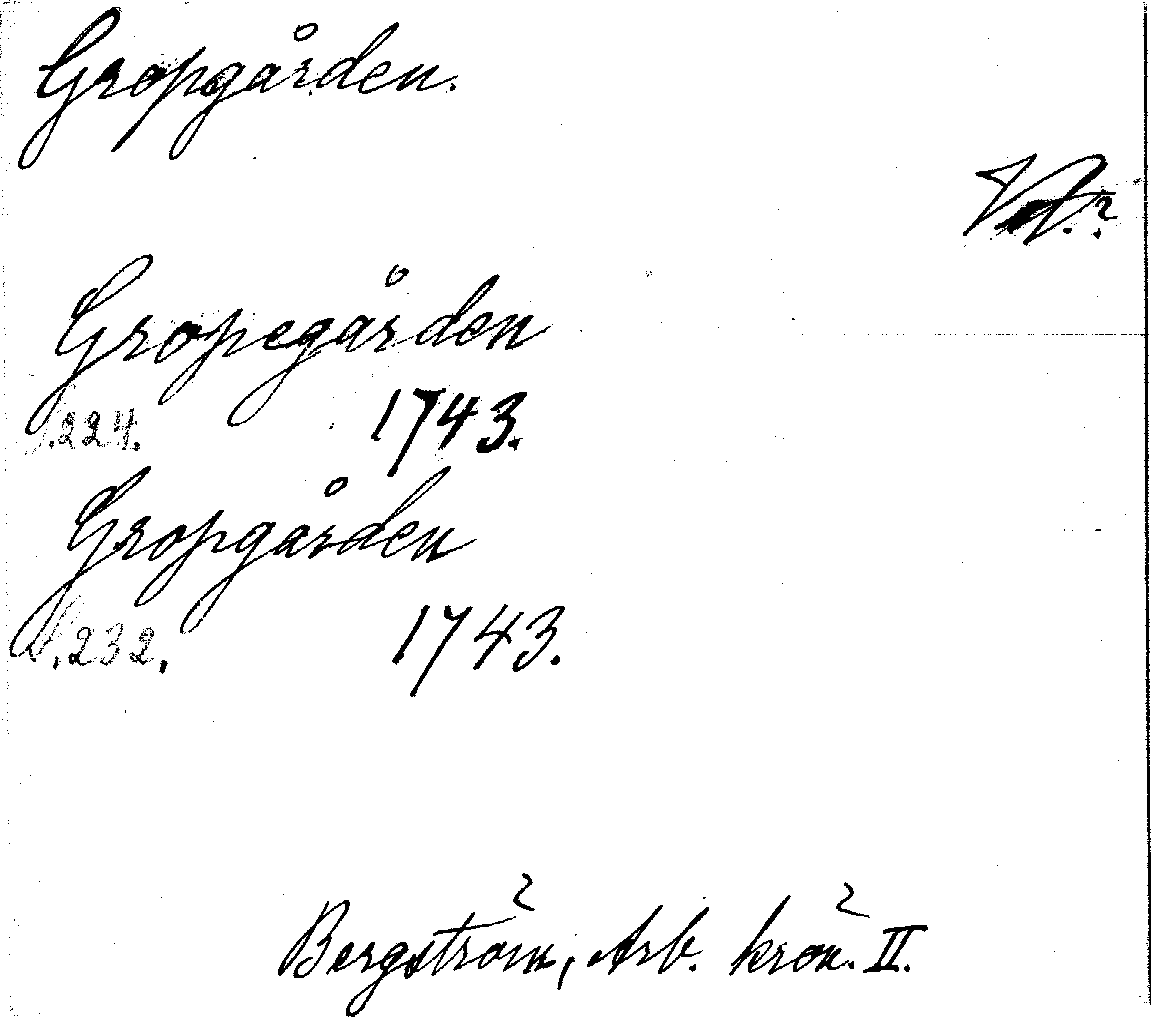 Gropgården.
Gropegården
s. 224. 1743.
Gropgården
s. 232. 1743.
Bergström, Arb. krön. II.